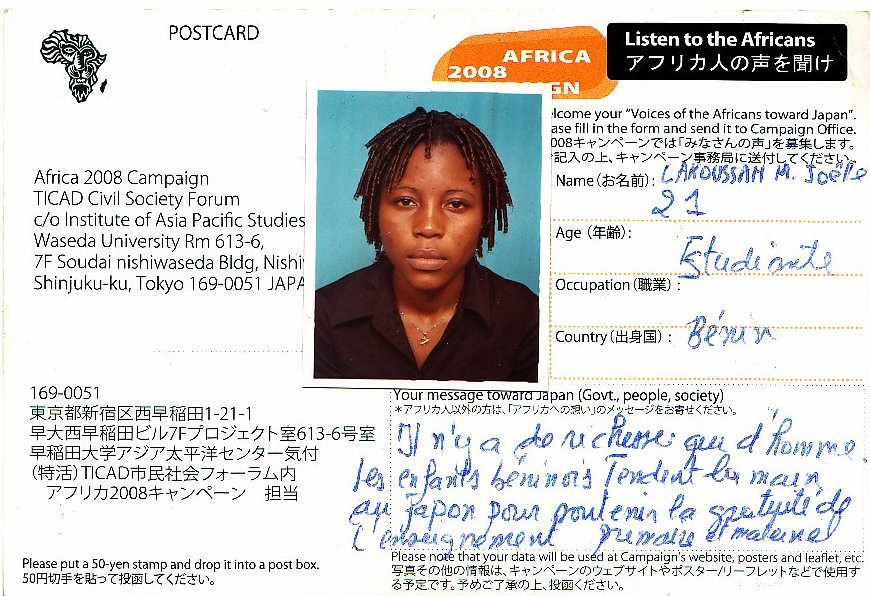 POSTCARD
AFRICA
2008
GN
Listen to the Africans
アフリカ人の声を聞け
elcome your "Voices of the Africans toward Japan".
ase fill in the form and send it to Campaign Office.
008キャンペーンでは「みなさんの声」を募集します。
記入の上、キャンペーン事務局に送付してください。
Name(お名前): LAKOUSSAN M. Joëlle
21
Age (年齢):
Estudiante
Occupation(職業):
Country(出身国): Bénin
Africa 2008 Campaign
TICAD Civil Society Forum
c/o Institute of Asia Pacific Studies
Waseda University Rm 613-6,
7F Soudai nishiwaseda Bldg, Nishi
Shinjuku-ku, Tokyo 169-0051 JAPA
169-0051
東京都新宿区西早稲田1-21-1
早大西早稲田ビル7Fプロジェクト室613-6号室
早稲田大学アジア太平洋センター気付
(特活)TICAD市民社会フォーラム内
アフリカ2008キャンペーン 担当
Please put a 50-yen stamp and drop it into a post box.
50円切手を貼って投函してください。
Your message toward Japan (Govt., people, society)
*アフリカ人以外の方は、「アフリカへの想い」のメッセージをお寄せください。
Il n'y a de richesse que d'homme
les enfants béninois Tendent la main
au japon pour soutenir la gratuité de
l'enseignement primaire et maternel
Please note that your data will be used at Campaign's website, posters and leaflet, etc.
写真その他の情報は、キャンペーンのウェブサイトやポスター/リーフレットなどで使用す
る予定です。予めご了承の上、投函ください。